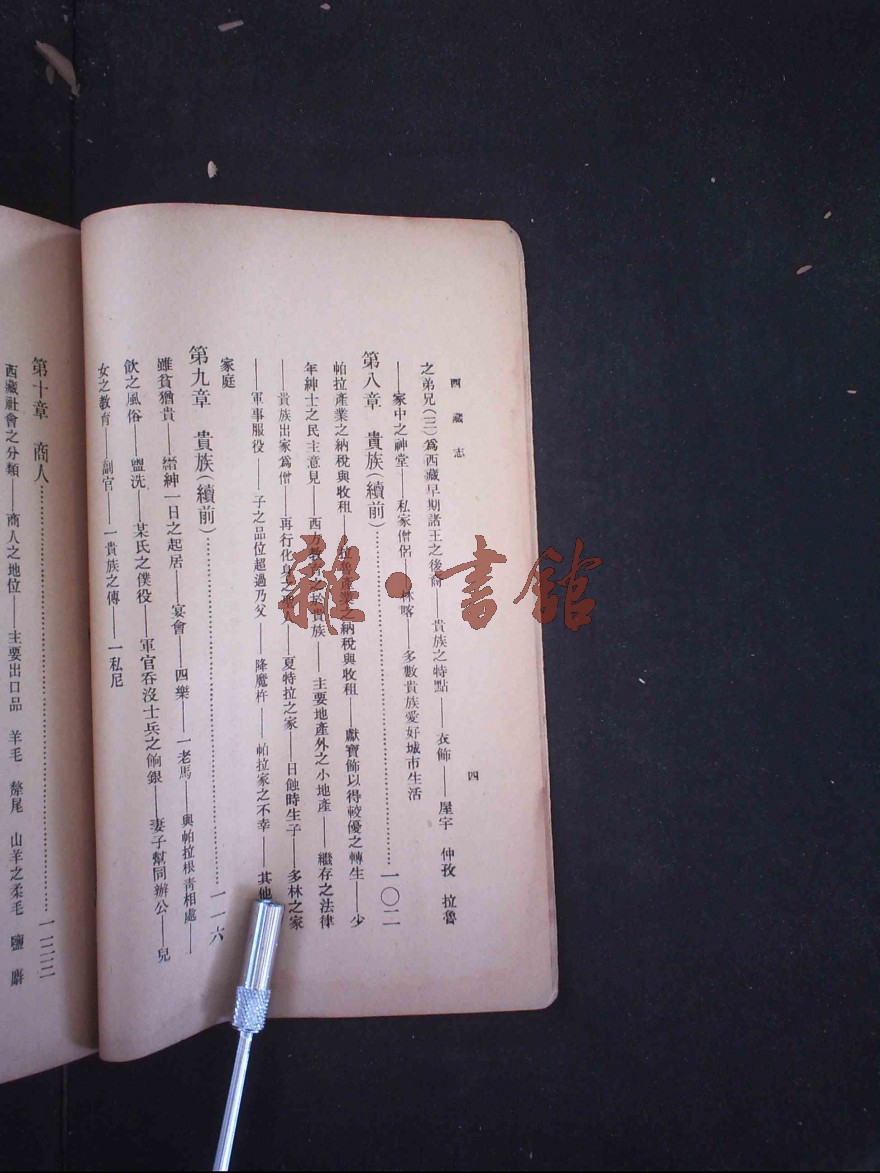 西藏志
四
之弟兄(三)爲西藏早期諸王之後裔——貴族之特點——衣飾——屋宇 仲孜 拉魯
——家中之神堂——私家僧侶——林喀——多數貴族愛好城市生活
第八章 貴族(續前)一〇二
帕拉產業之納稅與收租——產業之納稅與收租——獻寶飾以得較優之轉生——少
年紳士之民主意見——西方教育之於貴族——主要地產外之小地產——繼存之法律
——貴族出家爲僧——再行化身之——夏特拉之家——日蝕時生子——多林之家
——軍事服役——子之品位超過乃父——降魔杵——帕拉家之不幸——其他
家庭
第九章 貴族(續前)一一六
雖貧猶貴——縉紳一日之起居——宴會——四樂——一老馬——與帕拉根靑相處——
飲之風俗——盥洗——某氏之僕役——軍官吞沒士兵之餉銀——妻子幫同辦公——兒
女之教育——副官——一貴族之傳——一私尼
第十章 商人一三三
西藏社會之分類——商人之地位——主要出口品 羊毛 犛尾 山羊之柔毛 鹽 麝
雜·書館